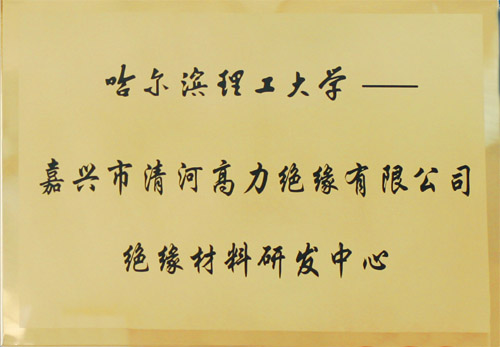 哈尔滨理工大学——
嘉兴市清河高力绝缘有限公司
绝缘材料研发中心